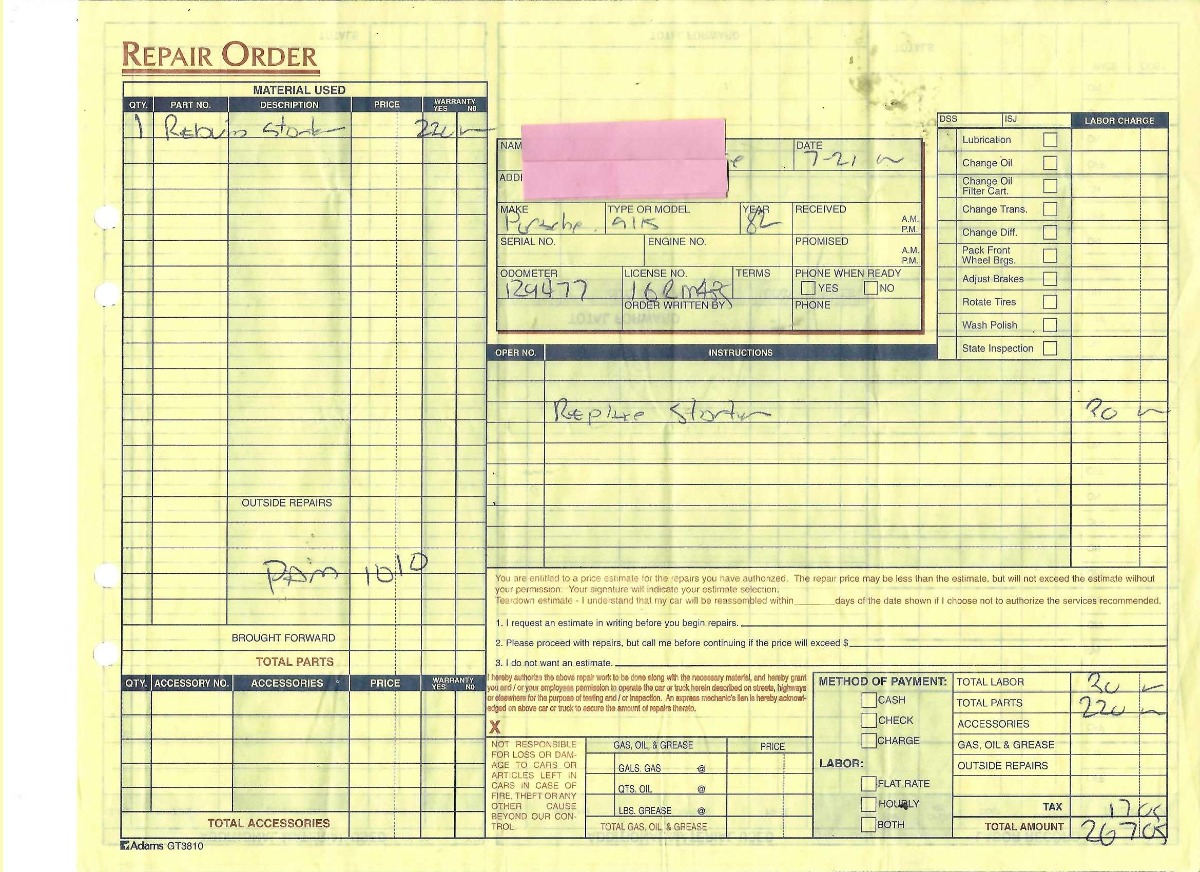 REPAIR ORDER
MATERIAL USED
QTY. PART NO. DESCRIPTION PRICE WARRANTY YES NO
1 220
OUTSIDE REPAIRS
1010
BROUGHT FORWARD
TOTAL PARTS
QTY. ACCESSORY NO. ACCESSORIES PRICE WARRANTY YES NO
TOTAL ACCESSORIES
Adams GT3810
NAM
DATE
7-21
ADDR
MAKE TYPE OR MODEL YEAR RECEIVED A.M. P.M.
Porsche 911S 82
SERIAL NO. ENGINE NO. PROMISED A.M. P.M.
ODOMETER LICENSE NO. TERMS PHONE WHEN READY
129477 YES NO
ORDER WRITTEN BY PHONE
DSS ISJ LABOR CHARGE
Lubrication
Change Oil
Change Oil
Filter Cart.
Change Trans.
Change Diff.
Pack Front
Wheel Brgs.
Adjust Brakes
Rotate Tires
Wash Polish
State Inspection
OPER NO. INSTRUCTIONS
Replace Starter 30
You are entitled to a price estimate for the repairs you have authorized. The repair price may be less than the estimate, but will not exceed the estimate without
your permission. Your signature will indicate your estimate selection.
Teardown estimate - I understand that my car will be reassembled within________days of the date shown if I choose not to authorize the services recommended.
1. I request an estimate in writing before you begin repairs.
2. Please proceed with repairs, but call me before continuing if the price will exceed $
3. I do not want an estimate.
I hereby authorize the above repair work to be done along with the necessary material, and hereby grant
you and / or your employees permission to operate the car or truck herein described on streets, highways
or elsewhere for the purpose of testing and / or inspection. An express mechanic's lien is hereby acknowl-
edged on above car or truck to secure the amount of repairs thereto.
X
NOT RESPONSIBLE
FOR LOSS OR DAM-
AGE TO CARS OR
ARTICLES LEFT IN
CARS IN CASE OF
FIRE, THEFT OR ANY
OTHER CAUSE
BEYOND OUR CON-
TROL.
GAS, OIL & GREASE PRICE
GALS. GAS @
QTS. OIL @
LBS. GREASE @
TOTAL GAS, OIL & GREASE
METHOD OF PAYMENT:
CASH
CHECK
CHARGE
LABOR:
FLAT RATE
HOURLY
BOTH
TOTAL LABOR 30
TOTAL PARTS 220
ACCESSORIES
GAS, OIL & GREASE
OUTSIDE REPAIRS
TAX 17 05
TOTAL AMOUNT 267 05